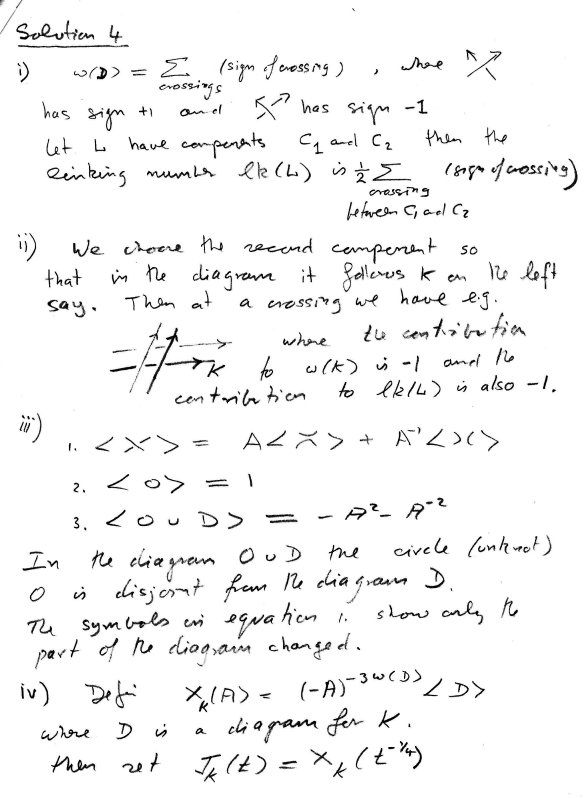 Solution 4
i) w(D) = Σ (sign of crossing) , where
crossings
has sign +1 and has sign -1
Let L have components C₁ and C₂ then the
linking number lk(L) is ½ Σ (sign of crossing)
crossing
between C₁ and C₂
ii) We choose the second component so
that in the diagram it follows K on the left
say. Then at a crossing we have e.g.
where the contribution
K to w(K) is -1 and the
contribution to lk(L) is also -1.
iii)
1. <X> = A<≍> + A⁻¹<)(>
2. <O> = 1
3. <O ∪ D> = -A²-A⁻²
In the diagram O∪D the circle (unknot)
O is disjoint from the diagram D.
The symbols in equation 1. show only the
part of the diagram changed.
iv) Defin X_K(A) = (-A)^{-3w(D)} <D>
where D is a diagram for K.
then set J_K(t) = X_K(t^{-1/4})